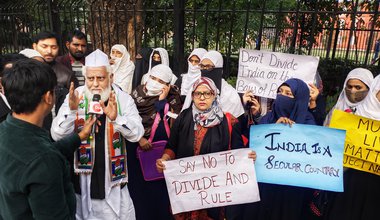 Don't Divide
India on the
SAY NO TO
DIVIDE AND
RULE
INDIA IS A
SECULAR COUNTRY
MU
LIVE
MATTE